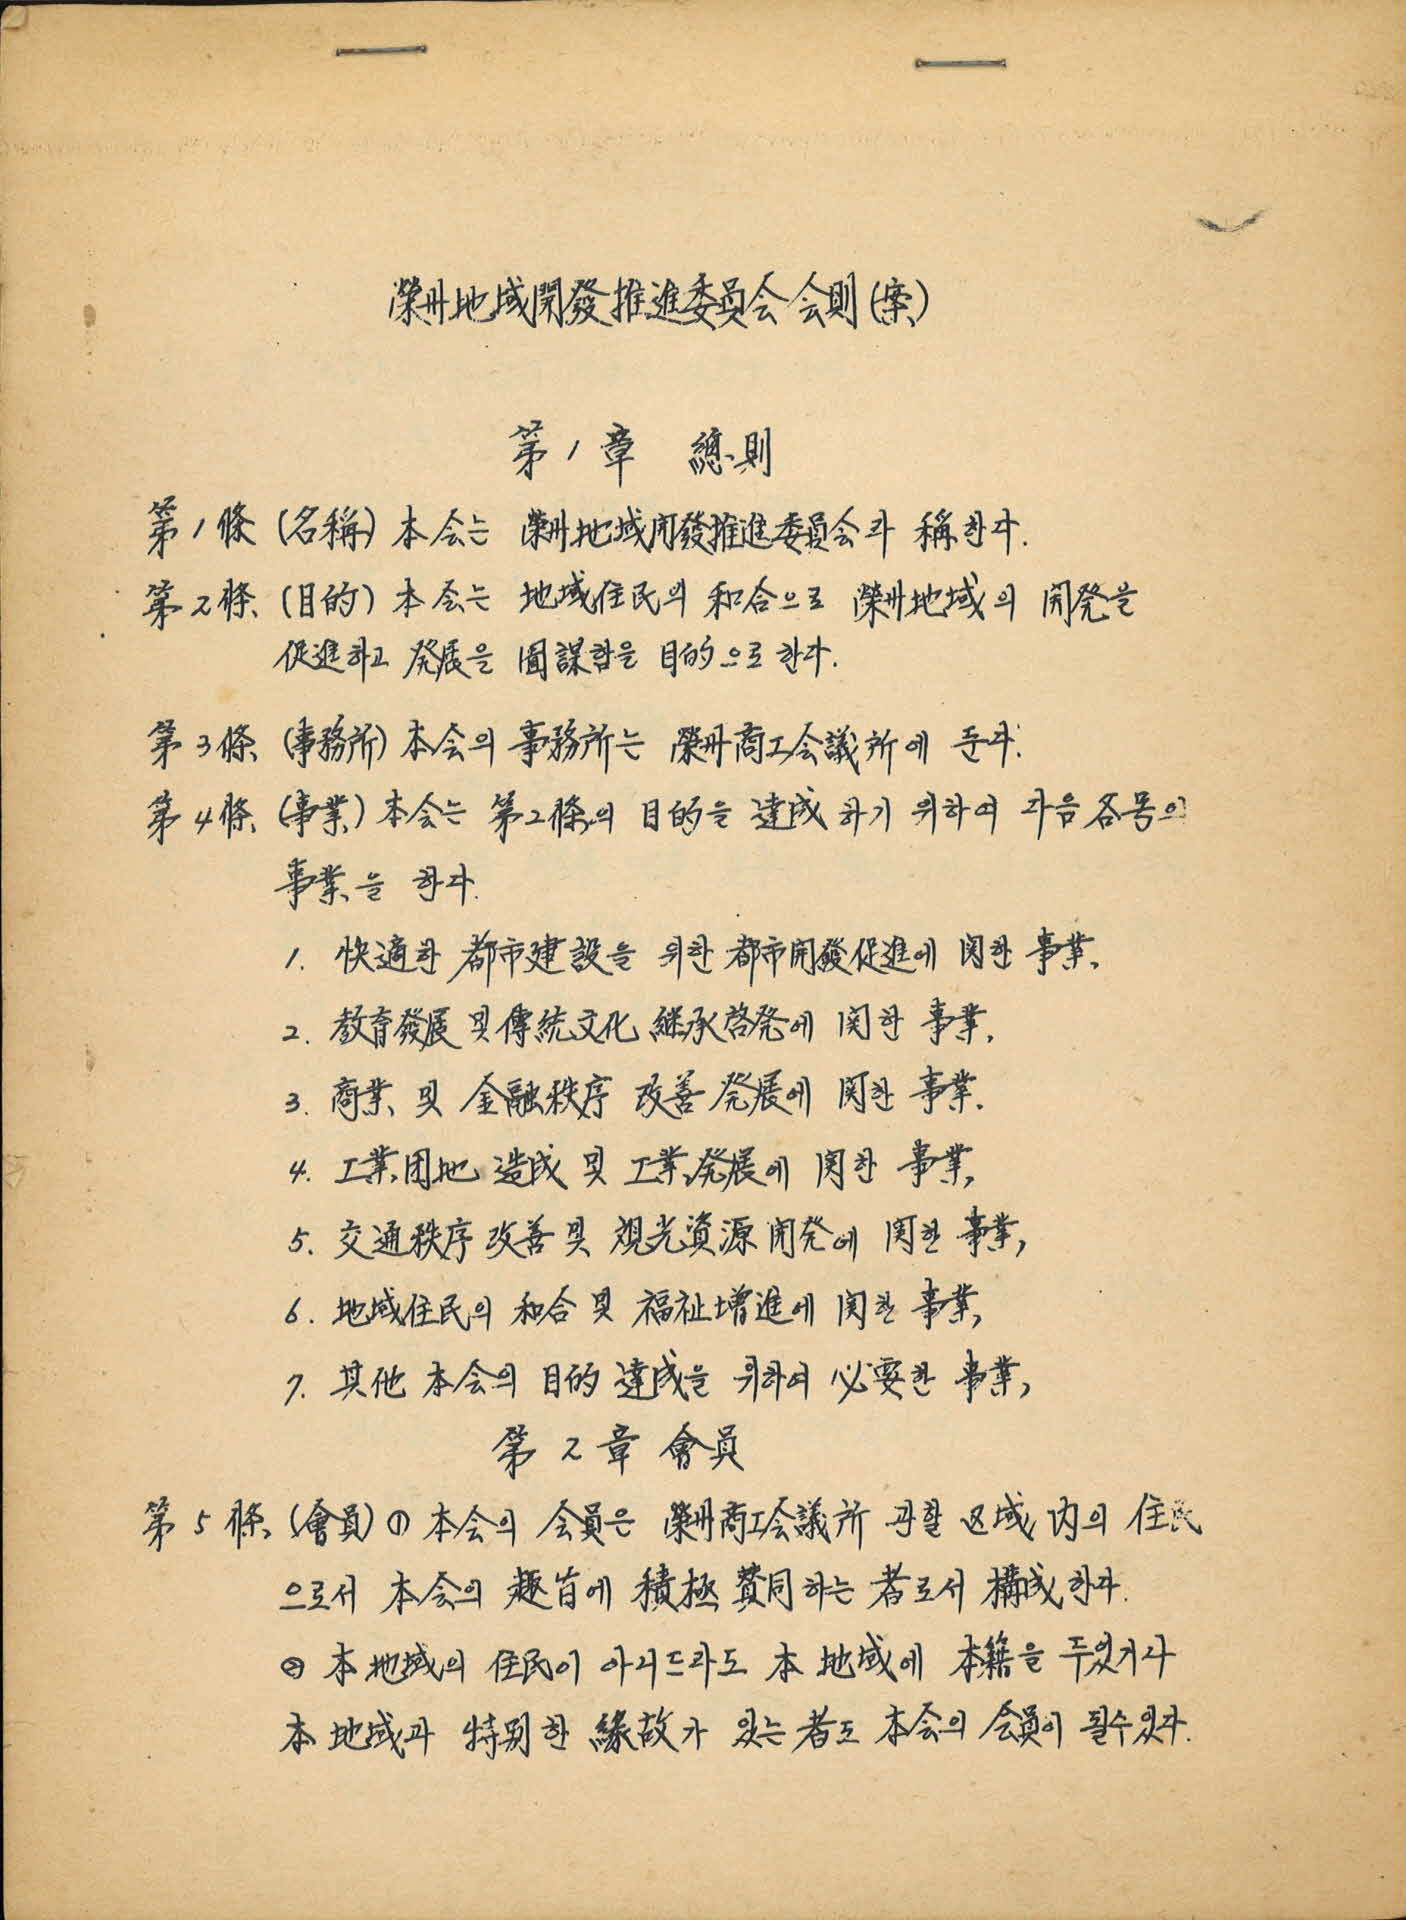 榮州地域開發推進委員会 会則(案)
第1章 總則
第1條 (名稱) 本会는 榮州地域開發推進委員会라 稱한다.
第2條 (目的) 本会는 地域住民의 和合으로 榮州地域의 開発을
促進하고 発展을 圖謀함을 目的으로 한다.
第3條 (事務所) 本会의 事務所는 榮州商工会議所에 둔다.
第4條 (事業) 本会는 第2條의 目的을 達成하기 위하여 다음 各号의
事業을 한다.
1. 快適한 都市建設을 위한 都市開發促進에 関한 事業,
2. 教育發展 및 傳統文化 継承啓発에 関한 事業,
3. 商業 및 金融秩序 改善 発展에 関한 事業.
4. 工業団地 造成 및 工業発展에 関한 事業,
5. 交通秩序 改善 및 観光資源 開発에 関한 事業,
6. 地域住民의 和合 및 福祉增進에 関한 事業,
7. 其他 本会의 目的 達成을 위하여 必要한 事業,
第2章 會員
第5條 (會員) ① 本会의 会員은 榮州商工会議所 관할 区域 内의 住民
으로서 本会의 趣旨에 積極 賛同하는 者로서 構成한다.
② 本 地域의 住民이 아니드라도 本 地域에 本籍을 두었거나
本 地域과 特別한 緣故가 있는 者도 本会의 会員이 될수있다.